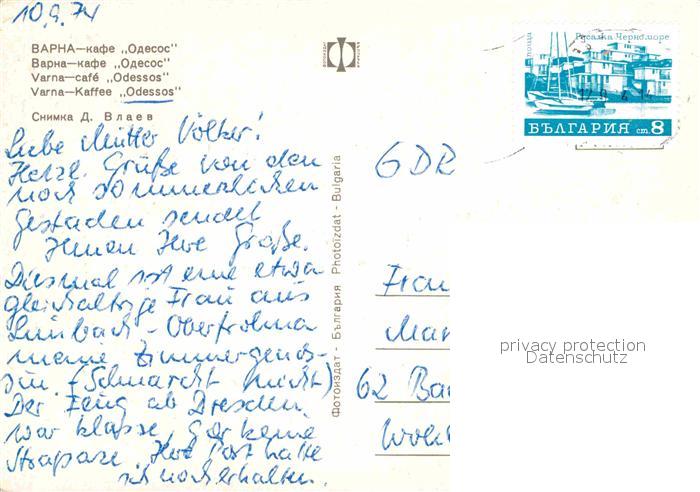 10.9.74
ВАРНА—кафе „Одесос"
Варна—кафе „Одесос"
Varna—café „Odessos"
Varna—Kaffee „Odessos"
Снимка Д. Влаев
Liebe Mutter Völker!
Herzl. Grüße von den
noch sommerlichen
Gestaden sendet
Ihnen Ihre Große.
Diesmal ist eine etwa
gleichaltrige Frau aus
Limbach-Oberfrohna
meine Zimmergenos-
sin. (Schnarcht nicht)
Der Flug ab Dresden
war klasse, gar keine
Strapaze. Ihre Post hatte
ich noch erhalten.
Фотоиздат - България Photoizdat - Bulgaria
поща
Русалка Черноморе
БЪЛГАРИЯ ст. 8
GDR
Frau
Mar
62 Ba
privacy protection
Datenschutz